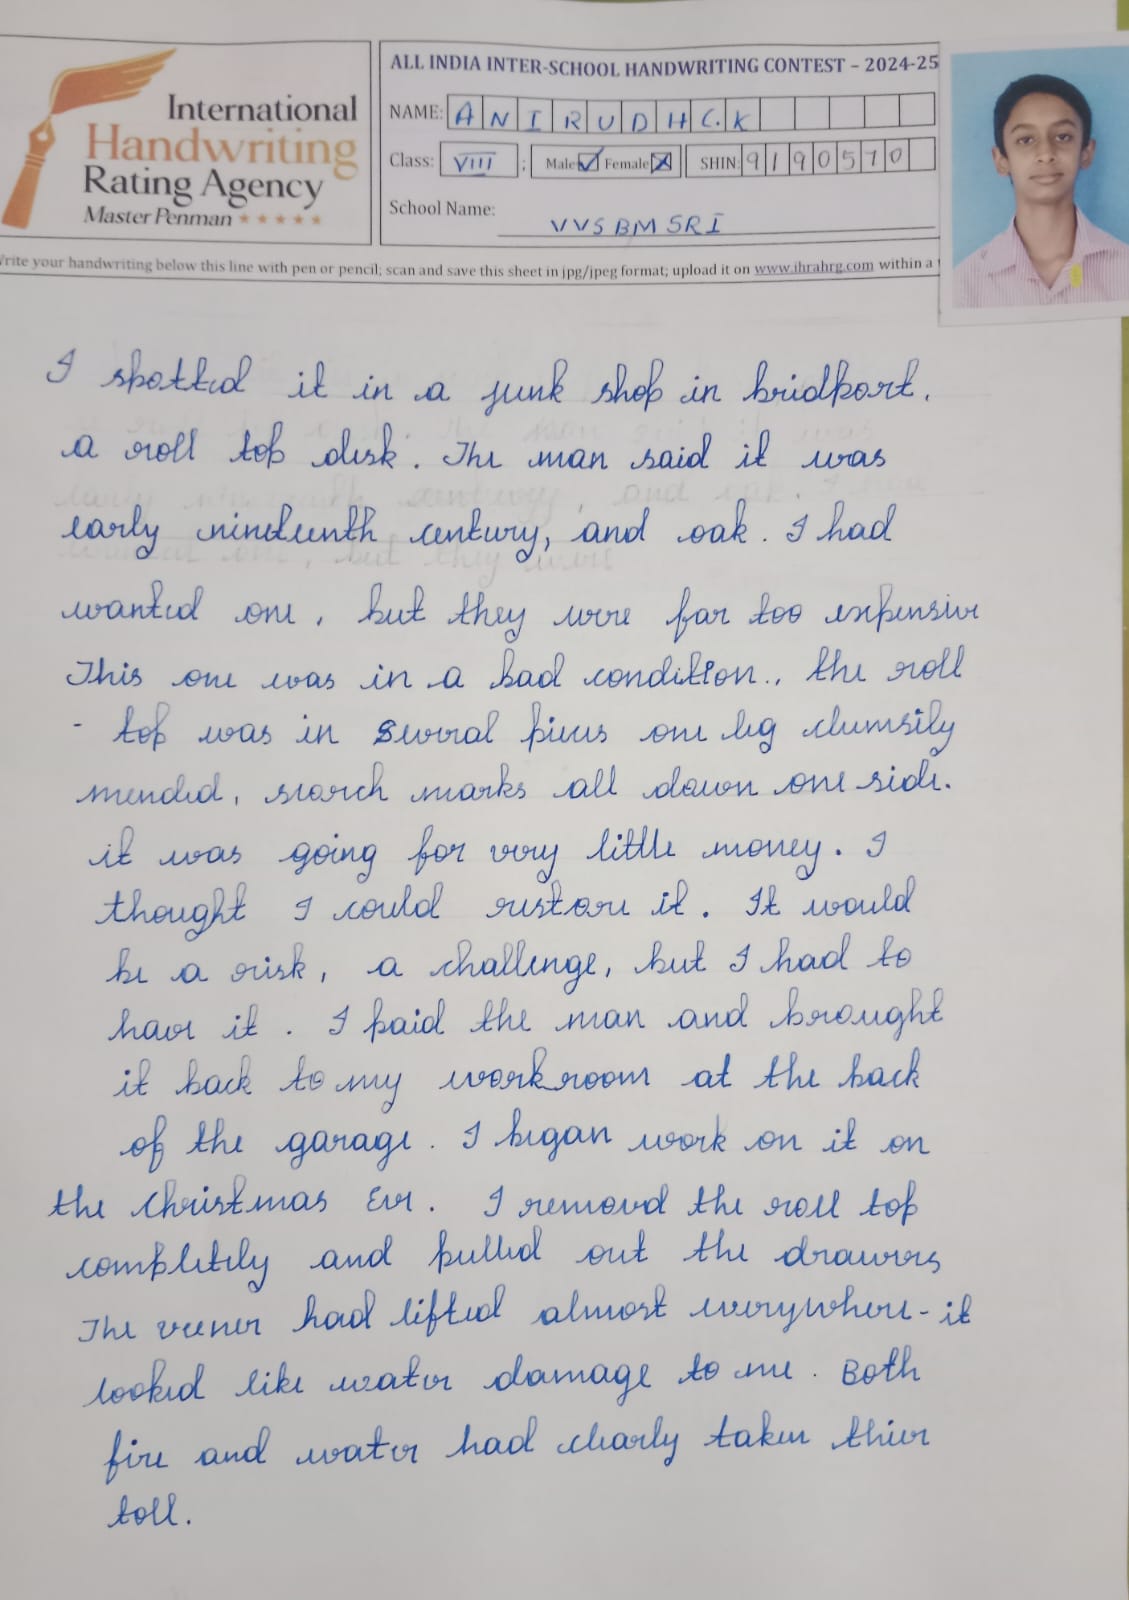 International
Handwriting
Rating Agency
Master Penman
ALL INDIA INTER-SCHOOL HANDWRITING CONTEST – 2024-25
NAME: ANIRUDH C.K
Class: VIII ; Male Female SHIN: 9190570
School Name: VVSBMSRI
Write your handwriting below this line with pen or pencil; scan and save this sheet in jpg/jpeg format; upload it on www.ihrahrg.com within a
I spotted it in a junk shop in bridport,
a roll top desk. The man said it was
early nineteenth century, and oak. I had
wanted one, but they were far too expensive
This one was in a bad condition., the roll
- top was in several pieces one leg clumsily
mended, scorch marks all down one side.
it was going for very little money. I
thought I could restore it. It would
be a risk, a challenge, but I had to
have it. I paid the man and brought
it back to my workroom at the back
of the garage. I began work on it on
the christmas Eve. I removed the roll top
completely and pulled out the drawers
The veener had lifted almost everywhere - it
looked like water damage to me. Both
fire and water had clearly taken thier
toll.